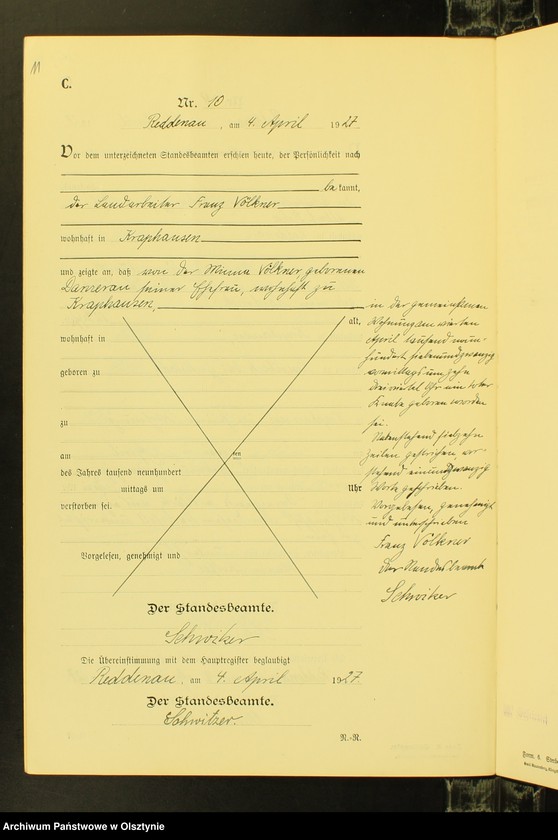 11
C.
Nr. 10
Reddenau, am 4. April 1927.
Vor dem unterzeichneten Standesbeamten erschien heute, der Persönlichkeit nach
be kannt,
der Landarbeiter Franz Völkner
wohnhaft in Kraphausen
und zeigte an, daß von der Minna Völkner geborenen
seiner Ehefrau, wohnhaft zu
Kraphausen,
alt,
wohnhaft in
geboren zu
zu
am ten
des Jahres tausend neunhundert
mittags um Uhr
verstorben sei.
Vorgelesen, genehmigt und
Der Standesbeamte.
Schwitzer
Die Übereinstimmung mit dem Hauptregister beglaubigt
Reddenau, am 4. April 1927
Der Standesbeamte.
Schwitzer.
R.-R.
in der gemeinsamen
Wohnung am vierten
April tausend neun-
hundert siebenundzwanzig
vormittags um zehn
dreiviertel Uhr ein toter
Knabe geboren worden
sei.
Nebenstehend siebzehn
Zeilen gestrichen, vor-
stehend einundzwanzig
Worte geschrieben.
Vorgelesen, genehmigt
und unterschrieben
Franz Völkner
Der Standesbeamte
Schwitzer
Archiwum Państwowe w Olsztynie